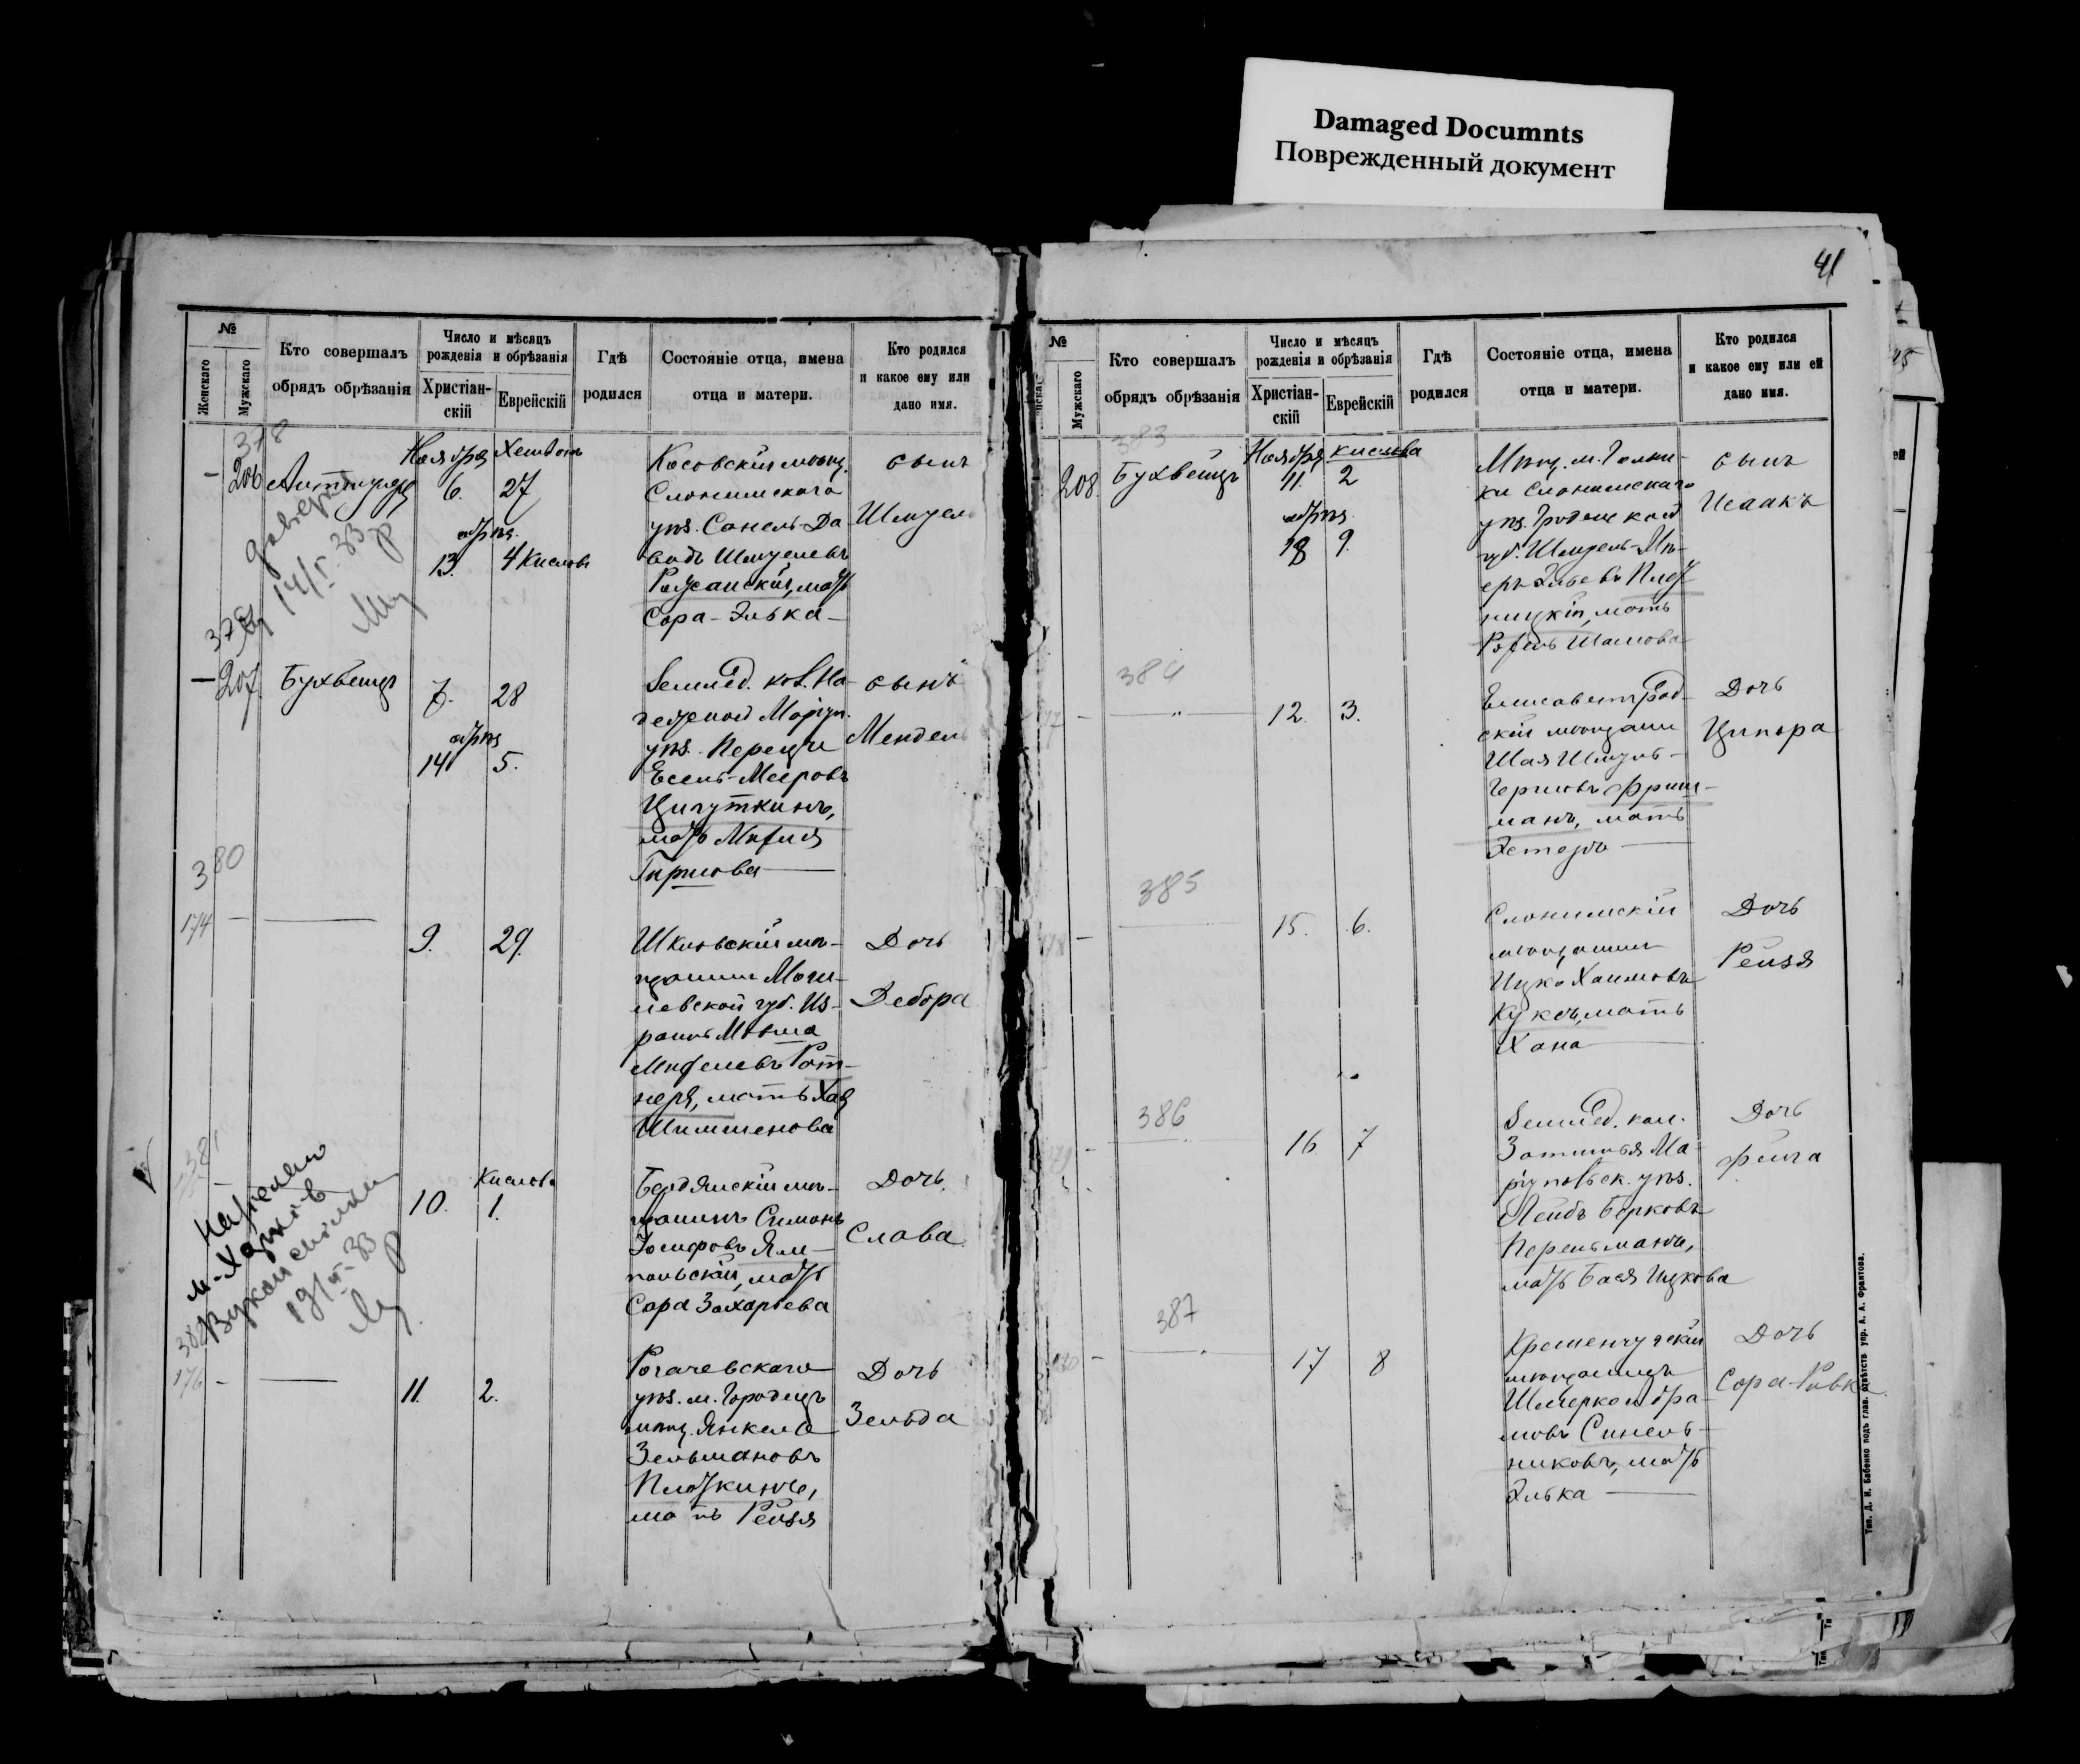 Damaged Documnts
Поврежденный документ
№
Женскаго
Мужскаго
Кто совершалъ
обрядъ обрѣзанія
Число и мѣсяцъ
рожденія и обрѣзанія
Христіан-
скій
Еврейскій
Гдѣ
родился
Состояніе отца, имена
отца и матери.
Кто родился
и какое ему или
дано имя.
378
206
Ноября Хешвонъ
6. 27
обрѣз.
13. 4 Кислова
Косовскій мѣщ.
Слонимскаго
уѣз. Сонель-Да
видъ Шмулевъ
Ружанскій, мать
Сора-Элька
сынъ
Шмуель
14/I-33
379
207.
Бухвецъ
7. 28
обрѣз
14 5.
Землед. кол. На-
дежной Маріуп.
уѣз. Перецъ
Есель-Мееровъ
Цигуткинъ,
мать Михля
Гиршова
сынъ
Мендель
380
174
9. 29.
Шкловскій мѣ-
щанинъ Моги-
левской губ. Из-
раиль Мовша
Михелевъ Рот-
неръ, мать Хая
Шимшенова
Дочь
Дебора
381
Кислова
10. 1.
Бердянскій мѣ-
щанинъ Симонъ
Іосифовъ Ям-
польскій, мать
Сора Захарьева
Дочь
Слава
м. Харків
19/II-33
382
176
11. 2.
Рогачевскаго
уѣз. м. Городецъ
мѣщ. Янкель
Зельмановъ
Плоткинъ,
мать Рейзя
Дочь
Зельда
41
№
Мужскаго
Кто совершалъ
обрядъ обрѣзанія
Число и мѣсяцъ
рожденія и обрѣзанія
Христіан-
скій
Еврейскій
Гдѣ
родился
Состояніе отца, имена
отца и матери.
Кто родился
и какое ему или ей
дано имя.
383
208.
Бухвецъ
Ноября Кислева
11. 2
обрѣз.
18 9.
Мѣщ. м. Голын-
ки Слонимскаго
уѣз. Гродненской
губ. Шмуель-Мѣ-
еръ Эльевъ Плот-
ницкій, мать
Рохель Шамова
сынъ
Исаакъ
384
12. 3.
Елисаветград-
скій мѣщанинъ
Шая Шмуль-
Гершовъ Фриш-
манъ, мать
Эстеръ
Дочь
Ципора
385
15. 6.
Слонимскій
мѣщанинъ
Ицко Хаимовъ
Куксъ, мать
Хана
Дочь
Рейзя
386
16 7
Землед. кол.
Затишья Ма-
ріупольск. уѣз.
Лейбъ Берковъ
Перельманъ,
мать Бася Ицкова
Дочь
Фейга
387
17 8
Кременчугскій
мѣщанинъ
Шмерко Абра-
мовъ Синель-
никовъ, мать
Элька
Дочь
Сора-Ривка
Тип. Д. И. Бабенко подъ глав. отвѣтств упр. А. А. Франтова.